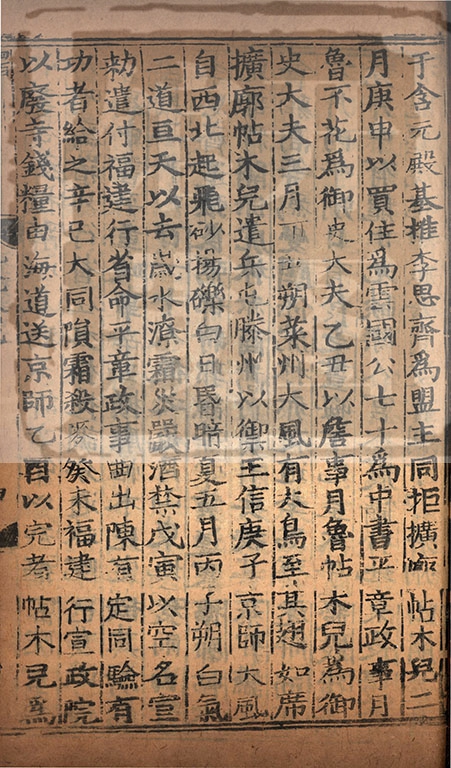 于含元殿基推李思齊爲盟主同拒擴廓帖木兒二
月庚申以買住爲雲國公七十爲中書平章政事月
魯不花爲御史大夫乙丑以詹事月魯帖木兒爲御
史大夫三月朔萊州大風有大鳥至其翅如席
擴廓帖木兒遣兵屯滕州以御王信庚子京師大風
自西北起飛砂揚礫白日昏暗夏五月丙子朔白氣
二道亘天以去歲水潦霜災嚴酒禁戊寅以空名宣
勑遣付福建行省命平章政事曲出陳有定同驗有
功者給之辛巳大同隕霜殺麥癸未福建行宣政院
以廢寺錢糧由海道送京師乙酉以完者帖木兒爲